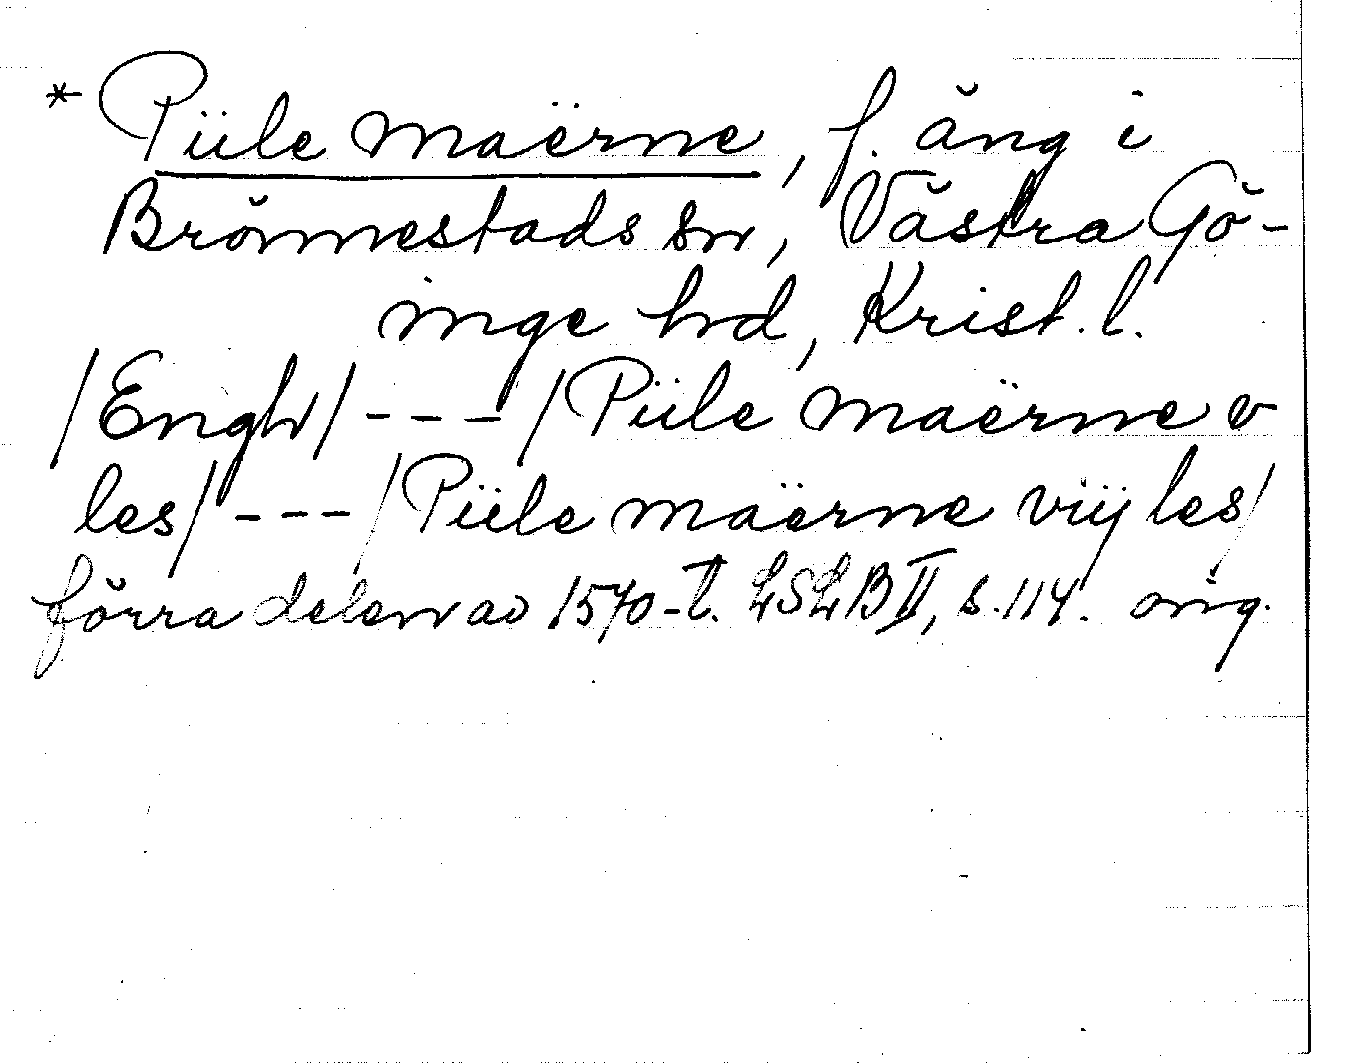 * Piile maërne, f. äng i
Brönnestads sn, Västra Gö-
inge hd, Krist. l.
/Engh/ --- /Piile maërne v
les/ --- /Piile maërne viij les/
förra delen av 1570-t. LSLB II, s. 114. orig.